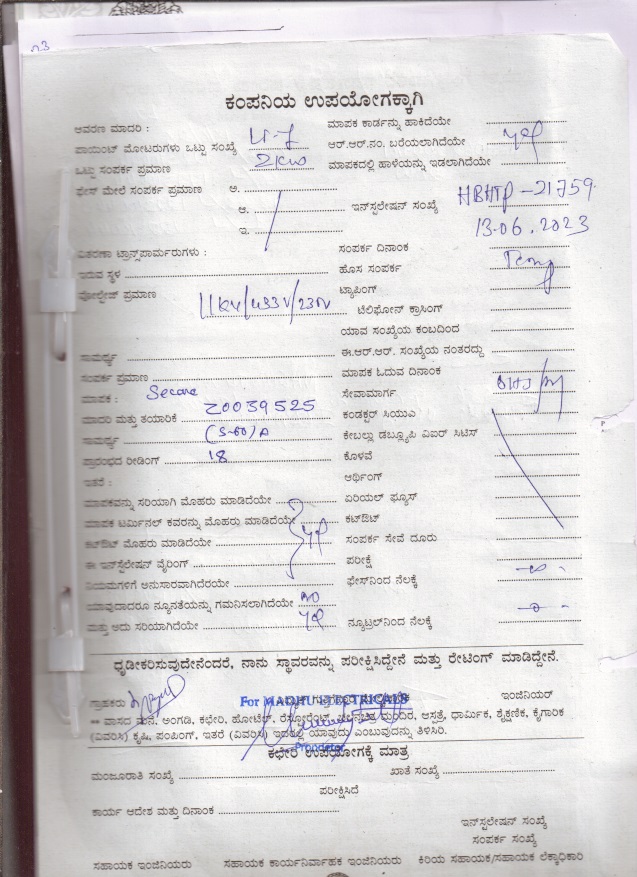 ಕಂಪನಿಯ ಉಪಯೋಗಕ್ಕಾಗಿ
ಆವರಣ ಮಾದರಿ :
ಮಾಪಕ ಕಾರ್ಡನ್ನು ಹಾಕಿದೆಯೇ
ಪಾಯಿಂಟ್ ಮೋಟರುಗಳು ಒಟ್ಟು ಸಂಖ್ಯೆ
ಆರ್.ಆರ್.ನಂ. ಬರೆಯಲಾಗಿದೆಯೇ
ಒಟ್ಟು ಸಂಪರ್ಕ ಪ್ರಮಾಣ 2KW
ಮಾಪಕದಲ್ಲಿ ಹಾಳೆಯನ್ನು ಇಡಲಾಗಿದೆಯೇ
ಫೇಸ್ ಮೇಲೆ ಸಂಪರ್ಕ ಪ್ರಮಾಣ ಅ.
ಆ. ಇನ್‌ಸ್ಟಲೇಷನ್ ಸಂಖ್ಯೆ HBHTP-21759
ಇ. 13.06.2023
ವಿತರಣಾ ಟ್ರಾನ್ಸ್‌ಫಾರ್ಮರುಗಳು :
ಸಂಪರ್ಕ ದಿನಾಂಕ
ಇರುವ ಸ್ಥಳ
ಹೊಸ ಸಂಪರ್ಕ
ವೋಲ್ಟೇಜ್ ಪ್ರಮಾಣ 11KV/433V/230V
ಟ್ಯಾಪಿಂಗ್
ಟೆಲಿಫೋನ್ ಕ್ರಾಸಿಂಗ್
ಯಾವ ಸಂಖ್ಯೆಯ ಕಂಬದಿಂದ
ಸಾಮರ್ಥ್ಯ
ಈ.ಆರ್.ಆರ್. ಸಂಖ್ಯೆಯ ನಂತರದ್ದು
ಸಂಪರ್ಕ ಪ್ರಮಾಣ
ಮಾಪಕ ಓದುವ ದಿನಾಂಕ
ಮಾಪಕ : Secure
ಸೇವಾಮಾರ್ಗ
ಮಾದರಿ ಮತ್ತು ತಯಾರಿಕೆ 20039525
ಕಂಡಕ್ಟರ್ ಸಿಯುಎ
ಸಾಮರ್ಥ್ಯ (5-60)A
ಕೇಬಲ್ಲು ಡಬ್ಲ್ಯೂಪಿ ಎಐರ್ ಸಿಟಿಸ್
ಪ್ರಾರಂಭದ ರೀಡಿಂಗ್ 18
ಕೊಳವೆ
ಇತರೆ :
ಆರ್ಥಿಂಗ್
ಮಾಪಕವನ್ನು ಸರಿಯಾಗಿ ಮೊಹರು ಮಾಡಿದೆಯೇ
ಏರಿಯಲ್ ಫ್ಯೂಸ್
ಮಾಪಕ ಟರ್ಮಿನಲ್ ಕವರನ್ನು ಮೊಹರು ಮಾಡಿದೆಯೇ
ಕಟ್‌ಔಟ್
ಕಟ್‌ಔಟ್ ಮೊಹರು ಮಾಡಿದೆಯೇ
ಸಂಪರ್ಕ ಸೇವೆ ದೂರು
ಈ ಇನ್‌ಸ್ಟಲೇಷನ್ ವೈರಿಂಗ್
ಪರೀಕ್ಷೆ
ನಿಯಮಗಳಿಗೆ ಅನುಸಾರವಾಗಿದೆರಯೇ
ಫೇಸ್‌ನಿಂದ ನೆಲಕ್ಕೆ
ಯಾವುದಾದರೂ ನ್ಯೂನತೆಯನ್ನು ಗಮನಿಸಲಾಗಿದೆಯೇ NO
ಮತ್ತು ಅದು ಸರಿಯಾಗಿದೆಯೇ
ನ್ಯೂಟ್ರಲ್‌ನಿಂದ ನೆಲಕ್ಕೆ
ಧೃಡೀಕರಿಸುವುದೇನೆಂದರೆ, ನಾನು ಸ್ಥಾವರವನ್ನು ಪರೀಕ್ಷಿಸಿದ್ದೇನೆ ಮತ್ತು ರೇಟಿಂಗ್ ಮಾಡಿದ್ದೇನೆ.
ಗ್ರಾಹಕರು For MADHU ELECTRICALS ಇಂಜಿನಿಯರ್
** ವಾಸದ ಮನೆ, ಅಂಗಡಿ, ಕಛೇರಿ, ಹೋಟೆಲ್, ರೆಸ್ಟೋರೆಂಟ್, ಚಲನಚಿತ್ರ ಮಂದಿರ, ಆಸ್ಪತ್ರೆ, ಧಾರ್ಮಿಕ, ಶೈಕ್ಷಣಿಕ, ಕೈಗಾರಿಕ
(ವಿವರಿಸಿ) ಕೃಷಿ, ಪಂಪಿಂಗ್, ಇತರೆ (ವಿವರಿಸಿ) ಇದರಲ್ಲಿ ಯಾವುದು ಎಂಬುವುದನ್ನು ತಿಳಿಸಿರಿ.
Proprietor
ಕಛೇರಿ ಉಪಯೋಗಕ್ಕೆ ಮಾತ್ರ
ಮಂಜೂರಾತಿ ಸಂಖ್ಯೆ
ಖಾತೆ ಸಂಖ್ಯೆ
ಪರೀಕ್ಷಿಸಿದೆ
ಕಾರ್ಯ ಆದೇಶ ಮತ್ತು ದಿನಾಂಕ
ಇನ್‌ಸ್ಟಲೇಷನ್ ಸಂಖ್ಯೆ
ಸಂಪರ್ಕ ಸಂಖ್ಯೆ
ಸಹಾಯಕ ಇಂಜಿನಿಯರು ಸಹಾಯಕ ಕಾರ್ಯನಿರ್ವಾಹಕ ಇಂಜಿನಿಯರು ಕಿರಿಯ ಸಹಾಯಕ/ಸಹಾಯಕ ಲೆಕ್ಕಾಧಿಕಾರಿ